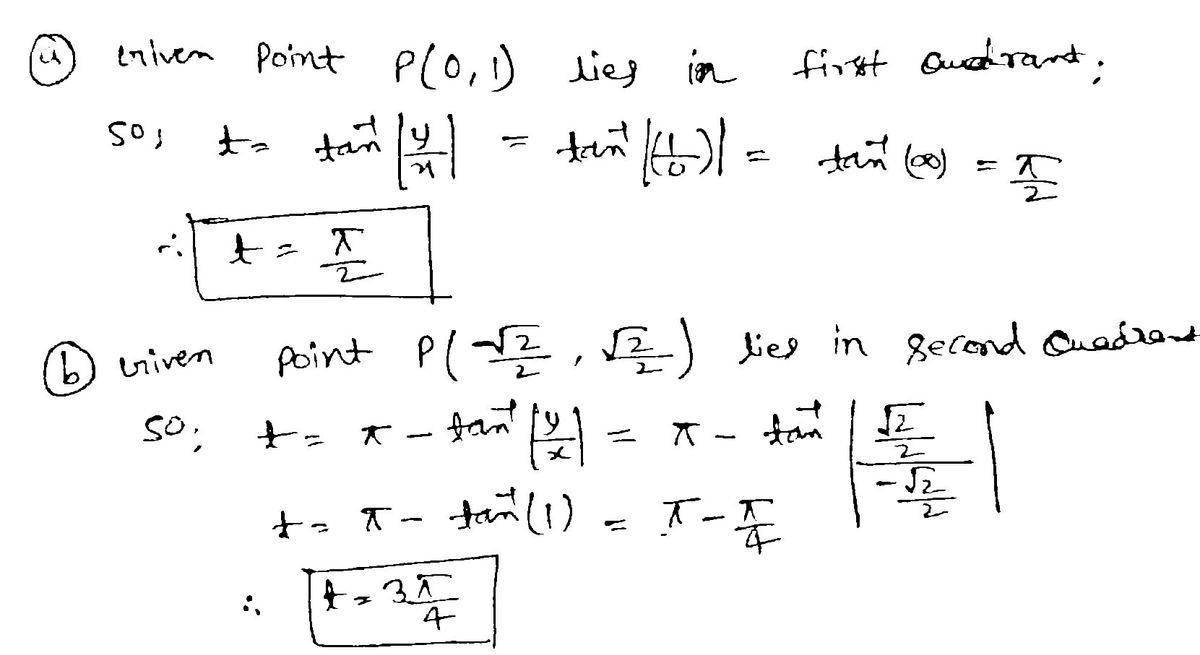 (a) Given Point P(0, 1) lies in first Quadrant;
SO; t = tan⁻¹ |y/x| = tan⁻¹ |(1/0)| = tan⁻¹ (∞) = π/2
∴ t = π/2
(b) Given Point P(-√2/2, √2/2) lies in second Quadrant
SO; t = π - tan⁻¹ |y/x| = π - tan⁻¹ |(√2/2)/(-√2/2)|
t = π - tan⁻¹(1) = π - π/4
∴ t = 3π/4